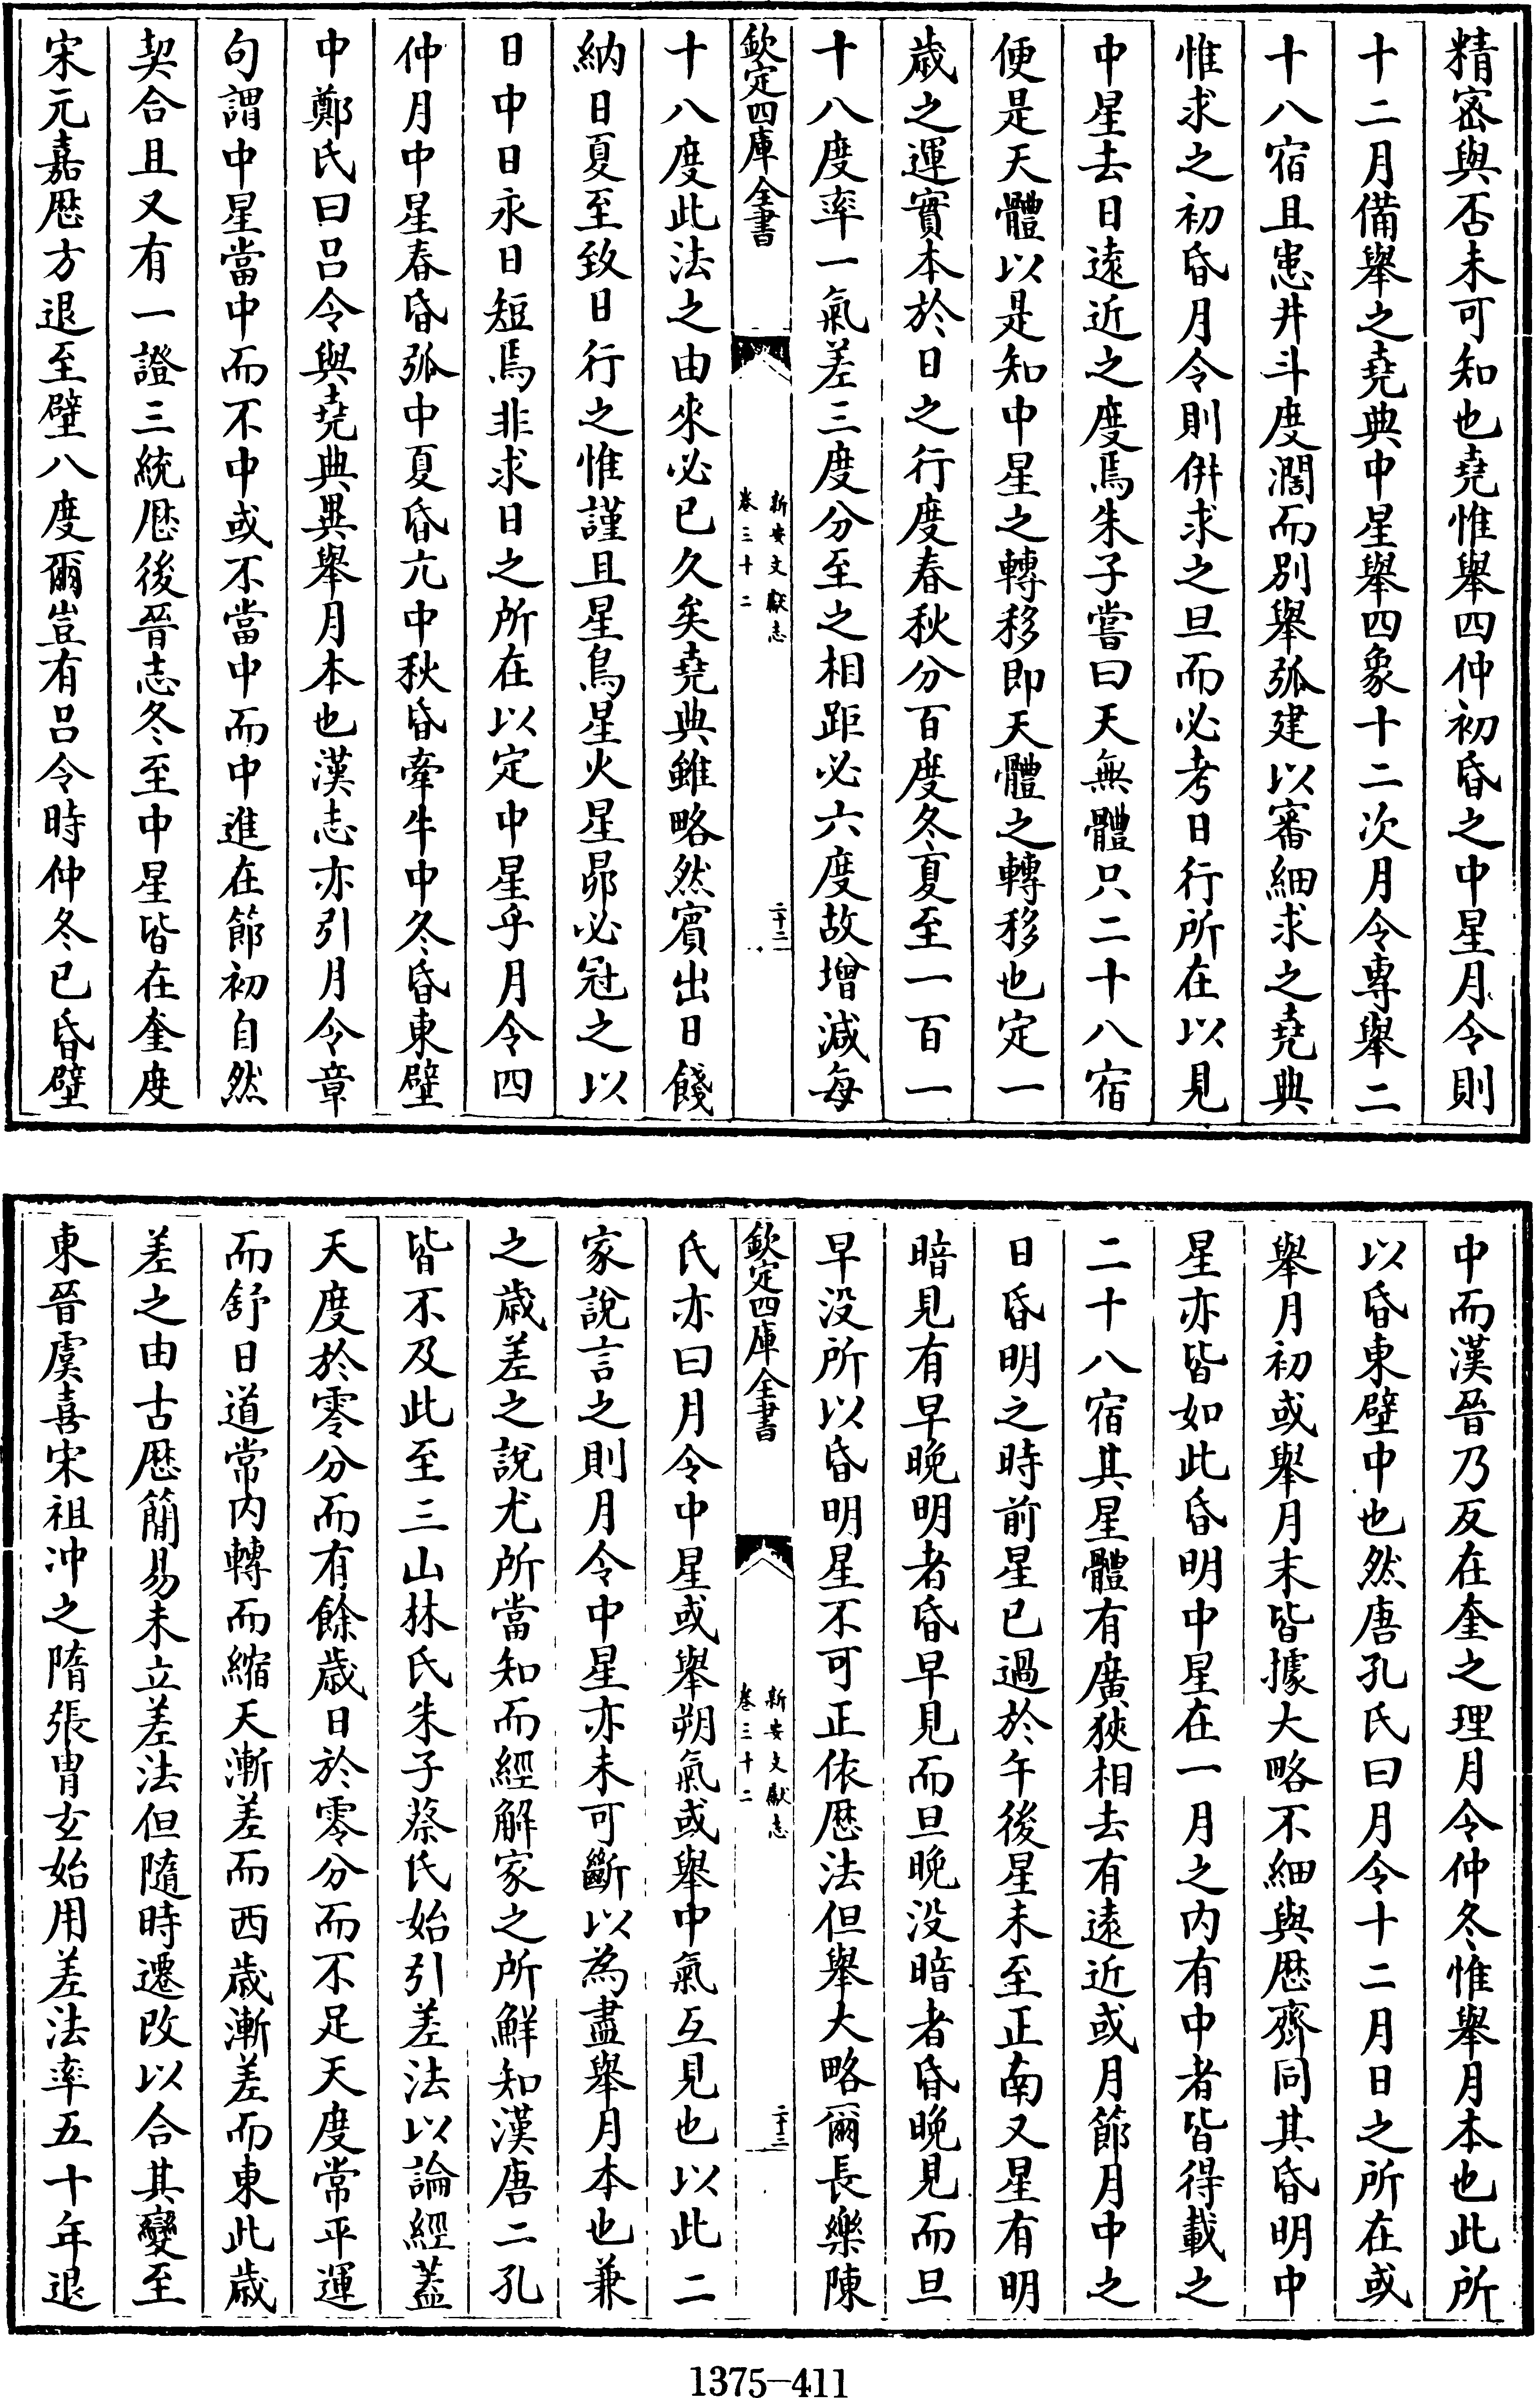 精密與否未可知也堯惟舉四仲初昏之中星月令則
十二月備舉之堯典中星舉四象十二次月令專舉二
十八宿且患井斗度濶而別舉弧建以審細求之堯典
惟求之初昏月令則併求之旦而必考日行所在以見
中星去日遠近之度焉朱子嘗曰天無體只二十八宿
便是天體以是知中星之轉移即天體之轉移也定一
歲之運實本於日之行度春秋分百度冬夏至一百一
十八度率一氣差三度分至之相距必六度故增減每
欽定四庫全書
新安文獻志
卷三十二
二十二
十八度此法之由來必已久矣堯典雖略然賓出日餞
納日夏至致日行之惟謹且星鳥星火星昴必冠之以
日中日永日短焉非求日之所在以定中星乎月令四
仲月中星春昏弧中夏昏亢中秋昏牽牛中冬昏東壁
中鄭氏曰呂令與堯典異舉月本也漢志亦引月令章
句謂中星當中而不中或不當中而中進在節初自然
契合且又有一證三統厯後晉志冬至中星皆在奎度
宋元嘉厯方退至壁八度爾豈有呂令時仲冬已昏壁
中而漢晉乃反在奎之理月令仲冬惟舉月本也此所
以昏東壁中也然唐孔氏曰月令十二月日之所在或
舉月初或舉月末皆據大略不細與厯齊同其昏明中
星亦皆如此昏明中星在一月之内有中者皆得載之
二十八宿其星體有廣狹相去有遠近或月節月中之
日昏明之時前星已過於午後星未至正南又星有明
暗見有早晚明者昏早見而旦晚没暗者昏晚見而旦
早没所以昏明星不可正依厯法但舉大略爾長樂陳
欽定四庫全書
新安文獻志
卷三十二
二十三
氏亦曰月令中星或舉朔氣或舉中氣互見也以此二
家說言之則月令中星亦未可斷以為盡舉月本也兼
之歲差之說尤所當知而經解家之所鮮知漢唐二孔
皆不及此至三山林氏朱子蔡氏始引差法以論經蓋
天度於零分而有餘歲日於零分而不足天度常平運
而舒日道常内轉而縮天漸差而西歲漸差而東此歲
差之由古厯簡易未立差法但隨時遷改以合其變至
東晉虞喜宋祖冲之隋張胄玄始用差法率五十年退
1375-411